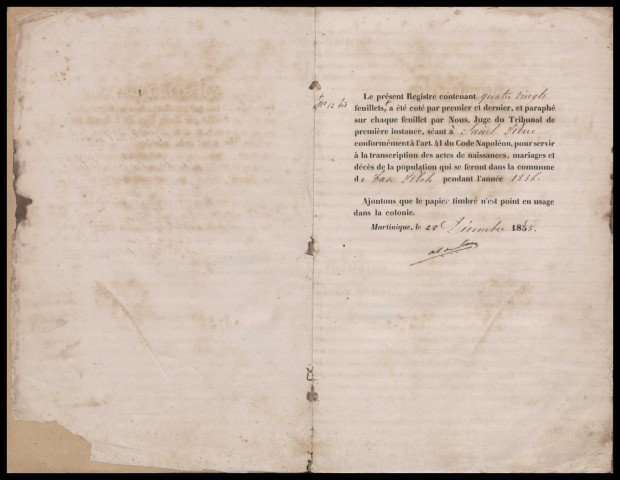 Le présent Registre contenant quatre vingts
feuillets, a été coté par premier et dernier, et paraphé
sur chaque feuillet par Nous, Juge du Tribunal de
première instance, séant à Saint Pierre
conformément à l'art. 41 du Code Napoléon, pour servir
à la transcription des actes de naissances, mariages et
décès de la population qui se feront dans la commune
de pendant l'année 1856.
Ajoutons que le papier timbré n'est point en usage
dans la colonie.
Martinique, le 28 Décembre 1855.